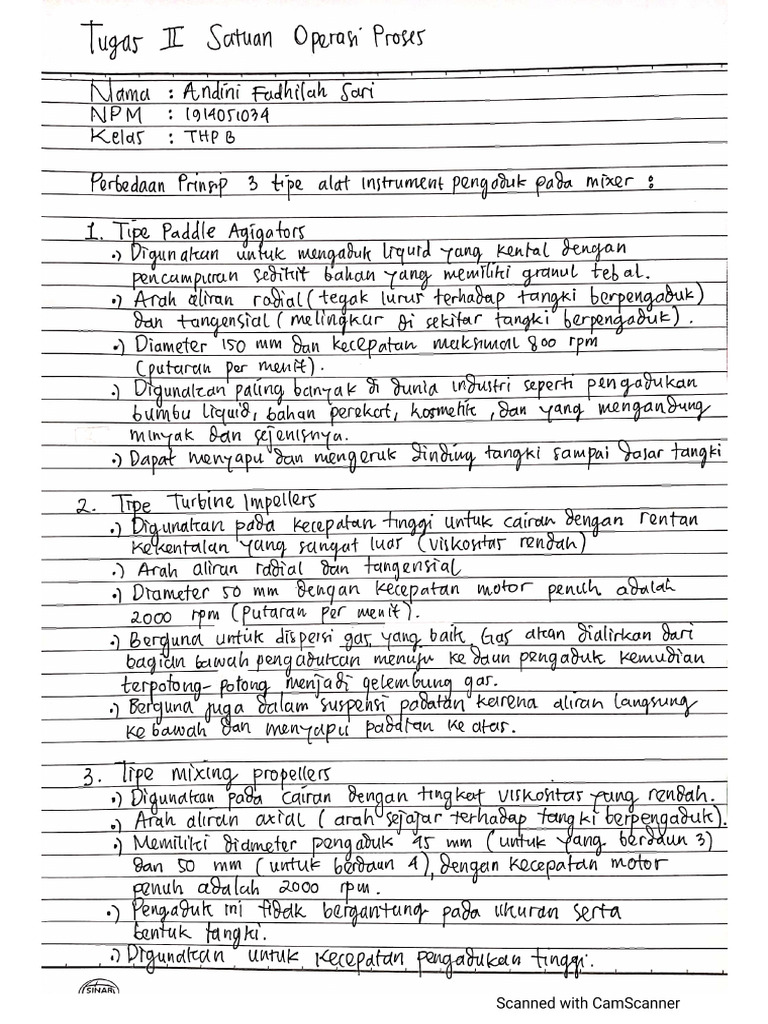 Tugas II Satuan Operasi Proses
Nama : Andini Fadhilah Sari
NPM : 1914051034
Kelas : THP B
Perbedaan Prinsip 3 tipe alat instrument pengaduk pada mixer :
1. Tipe Paddle Agigators
•) Digunakan untuk mengaduk liquid yang kental dengan
pencampuran sedikit bahan yang memiliki granul tebal.
•) Arah aliran radial (tegak lurus terhadap tangki berpengaduk)
dan tangensial (melingkar di sekitar tangki berpengaduk).
•) Diameter 150 mm dan kecepatan maksimal 800 rpm
(putaran per menit).
•) Digunakan paling banyak di dunia industri seperti pengadukan
bumbu liquid, bahan perekat, kosmetik, dan yang mengandung
minyak dan sejenisnya.
•) Dapat menyapu dan mengeruk dinding tangki sampai dasar tangki
2. Tipe Turbine Impellers
•) Digunakan pada kecepatan tinggi untuk cairan dengan rentan
kekentalan yang sangat luas (viskositas rendah)
•) Arah aliran radial dan tangensial
•) Diameter 50 mm dengan kecepatan motor penuh adalah
2000 rpm (putaran per menit).
•) Berguna untuk dispersi gas yang baik. Gas akan dialirkan dari
bagian bawah pengadukan menuju ke daun pengaduk kemudian
terpotong-potong menjadi gelembung gas.
•) Berguna juga dalam suspensi padatan karena aliran langsung
ke bawah dan menyapu padatan ke atas.
3. Tipe mixing propellers
•) Digunakan pada cairan dengan tingkat viskositas yang rendah.
•) Arah aliran axial (arah sejajar terhadap tangki berpengaduk).
•) Memiliki diameter pengaduk 45 mm (untuk yang berdaun 3)
dan 50 mm (untuk berdaun 4), dengan kecepatan motor
penuh adalah 2000 rpm.
•) Pengaduk ini tidak bergantung pada ukuran serta
bentuk tangki.
•) Digunakan untuk kecepatan pengadukan tinggi.
SINAR
Scanned with CamScanner